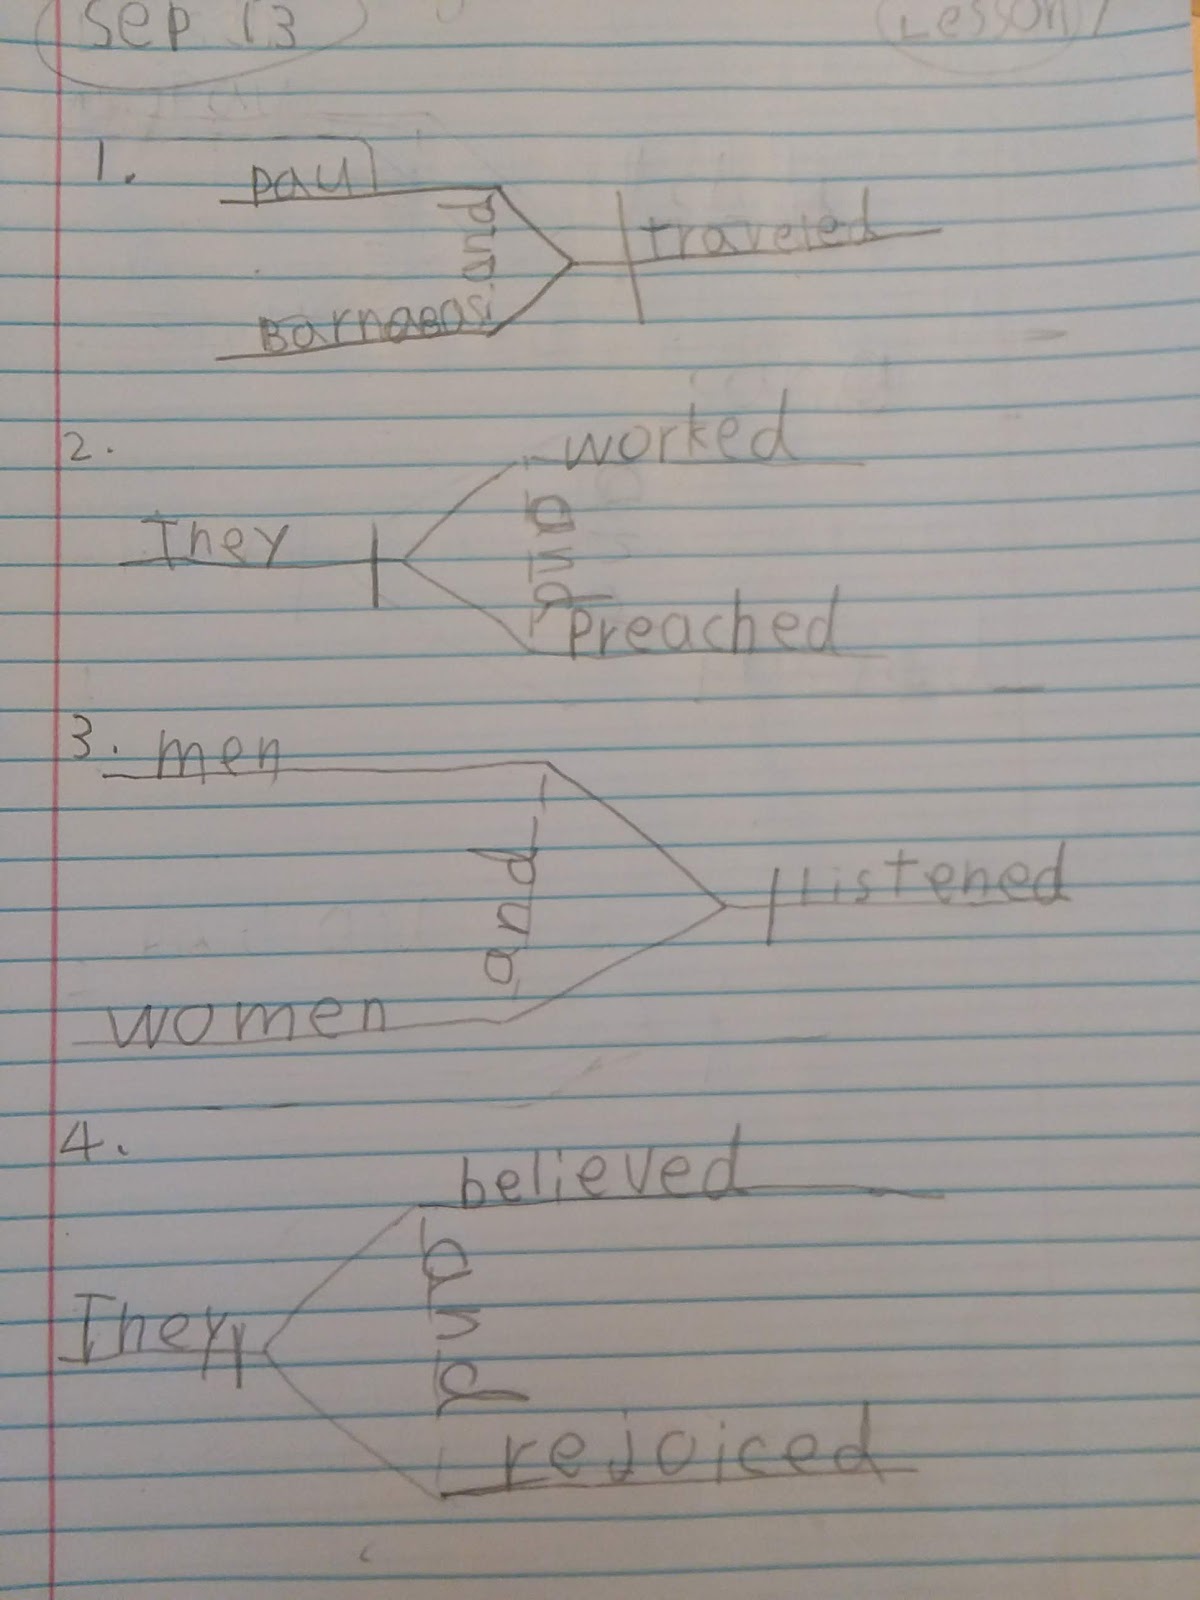 Sep 13
Lesson 1
1.
paul
and
traveled
Barnabas
2.
worked
They
and
Preached
3. men
and
Listened
women
4.
believed
and
They
rejoiced